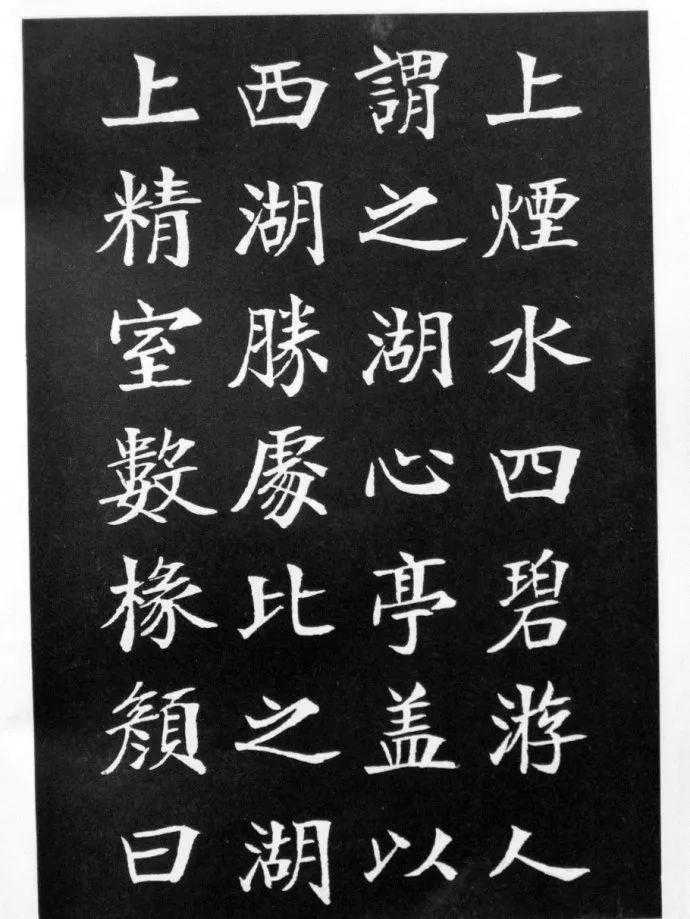 上煙水四碧游人
謂之湖心亭盖以
西湖勝處比之湖
上精室數椽顏曰